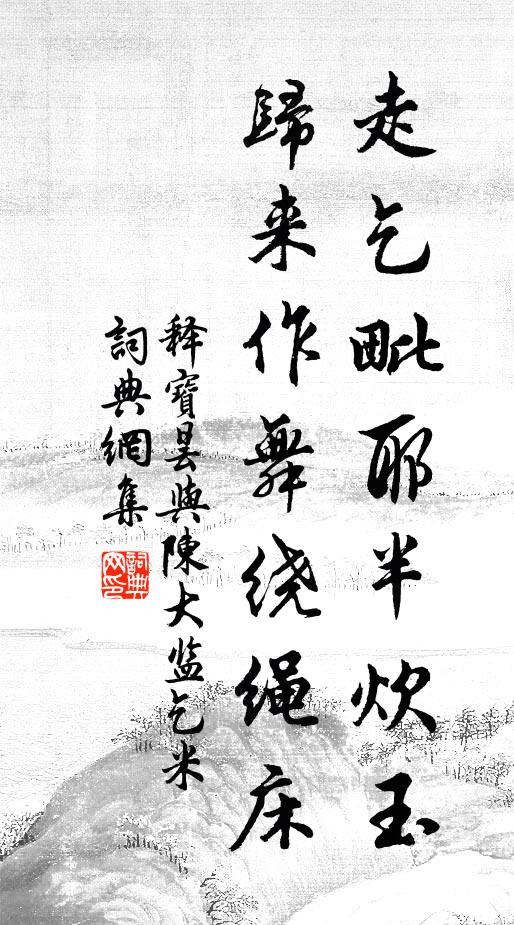 走乞毗耶半炊玉
歸来作舞绕绳床
释寶昙與陳大监乞米
詞典網集
詞典
网印